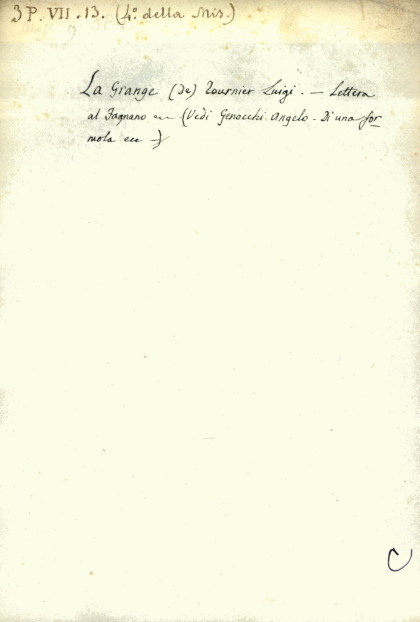 3 P. VII. 13. (4º della Mis.)
La Grange (De) Tournier Luigi. — Lettera
al Fagnano — (Vedi Genocchi Angelo - Di una for
mola ecc —)
C